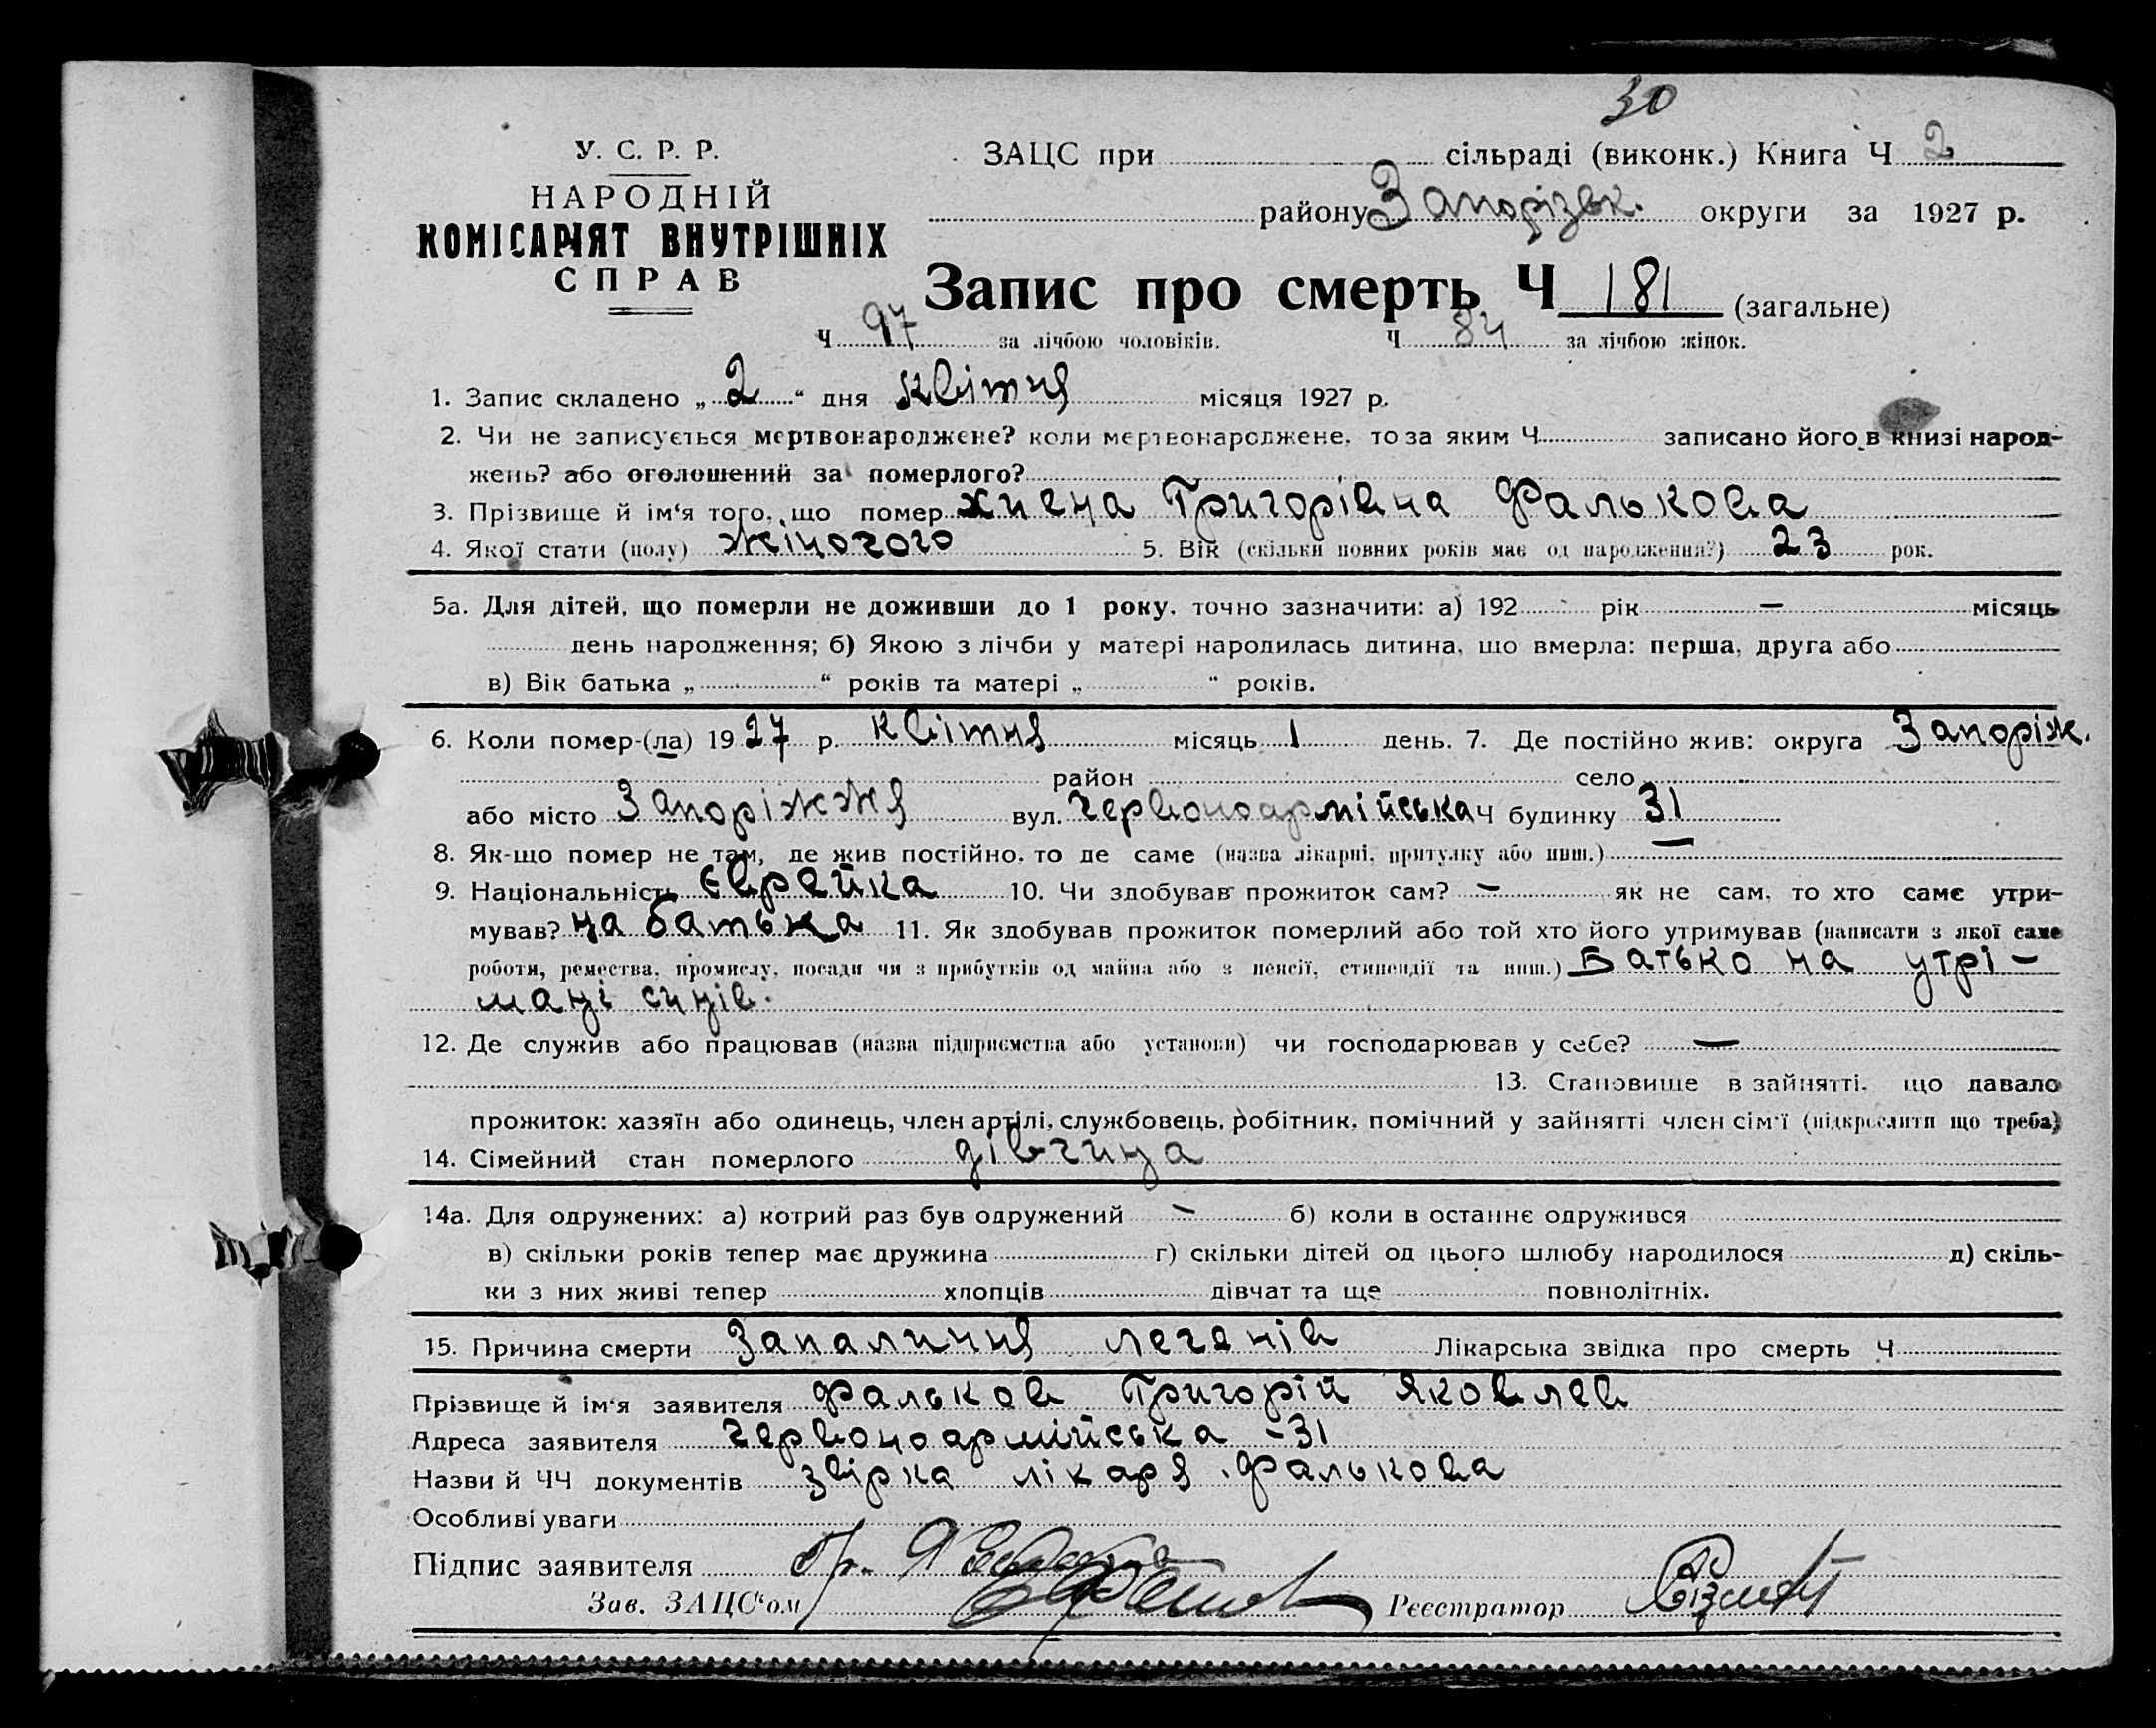 30
У. С. Р. Р.
НАРОДНІЙ
КОМІСАРІЯТ ВНУТРІШНІХ
СПРАВ
ЗАЦС при сільраді (виконк.) Книга Ч 2
району Запорізьк. округи за 1927 р.
Запис про смерть Ч 181 (загальне)
Ч 97 за лічбою чоловіків. Ч 84 за лічбою жінок.
1. Запис складено „ 2 “ дня квітня місяця 1927 р.
2. Чи не записується мертвонароджене? коли мертвонароджене, то за яким Ч записано його в книзі народ-
жень? або оголошений за померлого?
3. Прізвище й ім‘я того, що помер Григорівна Фалькова
4. Якої стати (полу) жіночого 5. Вік (скільки повних років має од народження?) 23 рок.
5а. Для дітей, що померли не доживши до 1 року, точно зазначити: а) 192 рік — місяць
день народження; б) Якою з лічби у матері народилась дитина, що вмерла: перша, друга або
в) Вік батька „ “ років та матері „ “ років.
6. Коли помер-(ла) 1927 р. квітня місяць 1 день. 7. Де постійно жив: округа Запоріж.
район село
або місто Запоріжжя вул. Червоноармійська Ч будинку 31
8. Як-що помер не там, де жив постійно, то де саме (назва лікарні, притулку або инш.) —
9. Національність єврейка 10. Чи здобував прожиток сам? — як не сам, то хто саме утри-
мував? на батька 11. Як здобував прожиток померлий або той хто його утримував (написати з якої саме
роботи, ремества, промислу, посади чи з прибутків од майна або з пенсії, стипендії та инш.) Батько на утрі-
мані синів.
12. Де служив або працював (назва підприємства або установи) чи господарював у себе? —
13. Становище в зайнятті, що давало
прожиток: хазяїн або одинець, член артілі, службовець, робітник, помічний у зайнятті член сім‘ї (підкреслити що треба)
14. Сімейний стан померлого дівчина
14а. Для одружених: а) котрий раз був одружений — б) коли в останнє одружився
в) скільки років тепер має дружина г) скільки дітей од цього шлюбу народилося д) скіль-
ки з них живі тепер хлопців дівчат та ще повнолітніх.
15. Причина смерти Запалиння легенів Лікарська звідка про смерть Ч
Прізвище й ім‘я заявителя Фальков Григорій Яковлев
Адреса заявителя Червоноармійська - 31
Назви й ЧЧ документів звірка лікаря Фалькова
Особливі уваги
Підпис заявителя
Зав. ЗАЦС‘ом Реєстратор